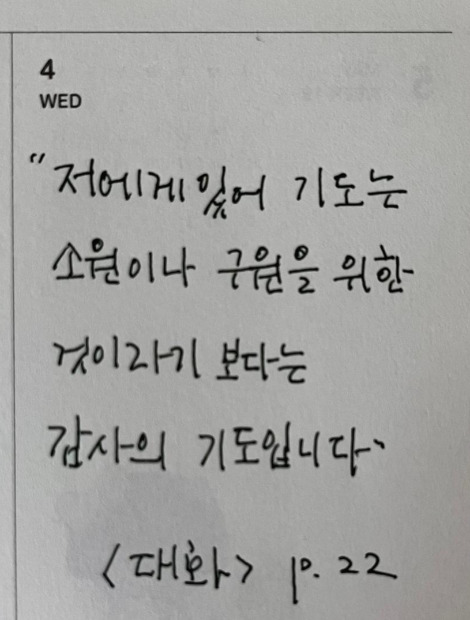 4
WED
"저에게 있어 기도는
소원이나 구원을 위한
것이라기 보다는
감사의 기도입니다"
<대화> p. 22